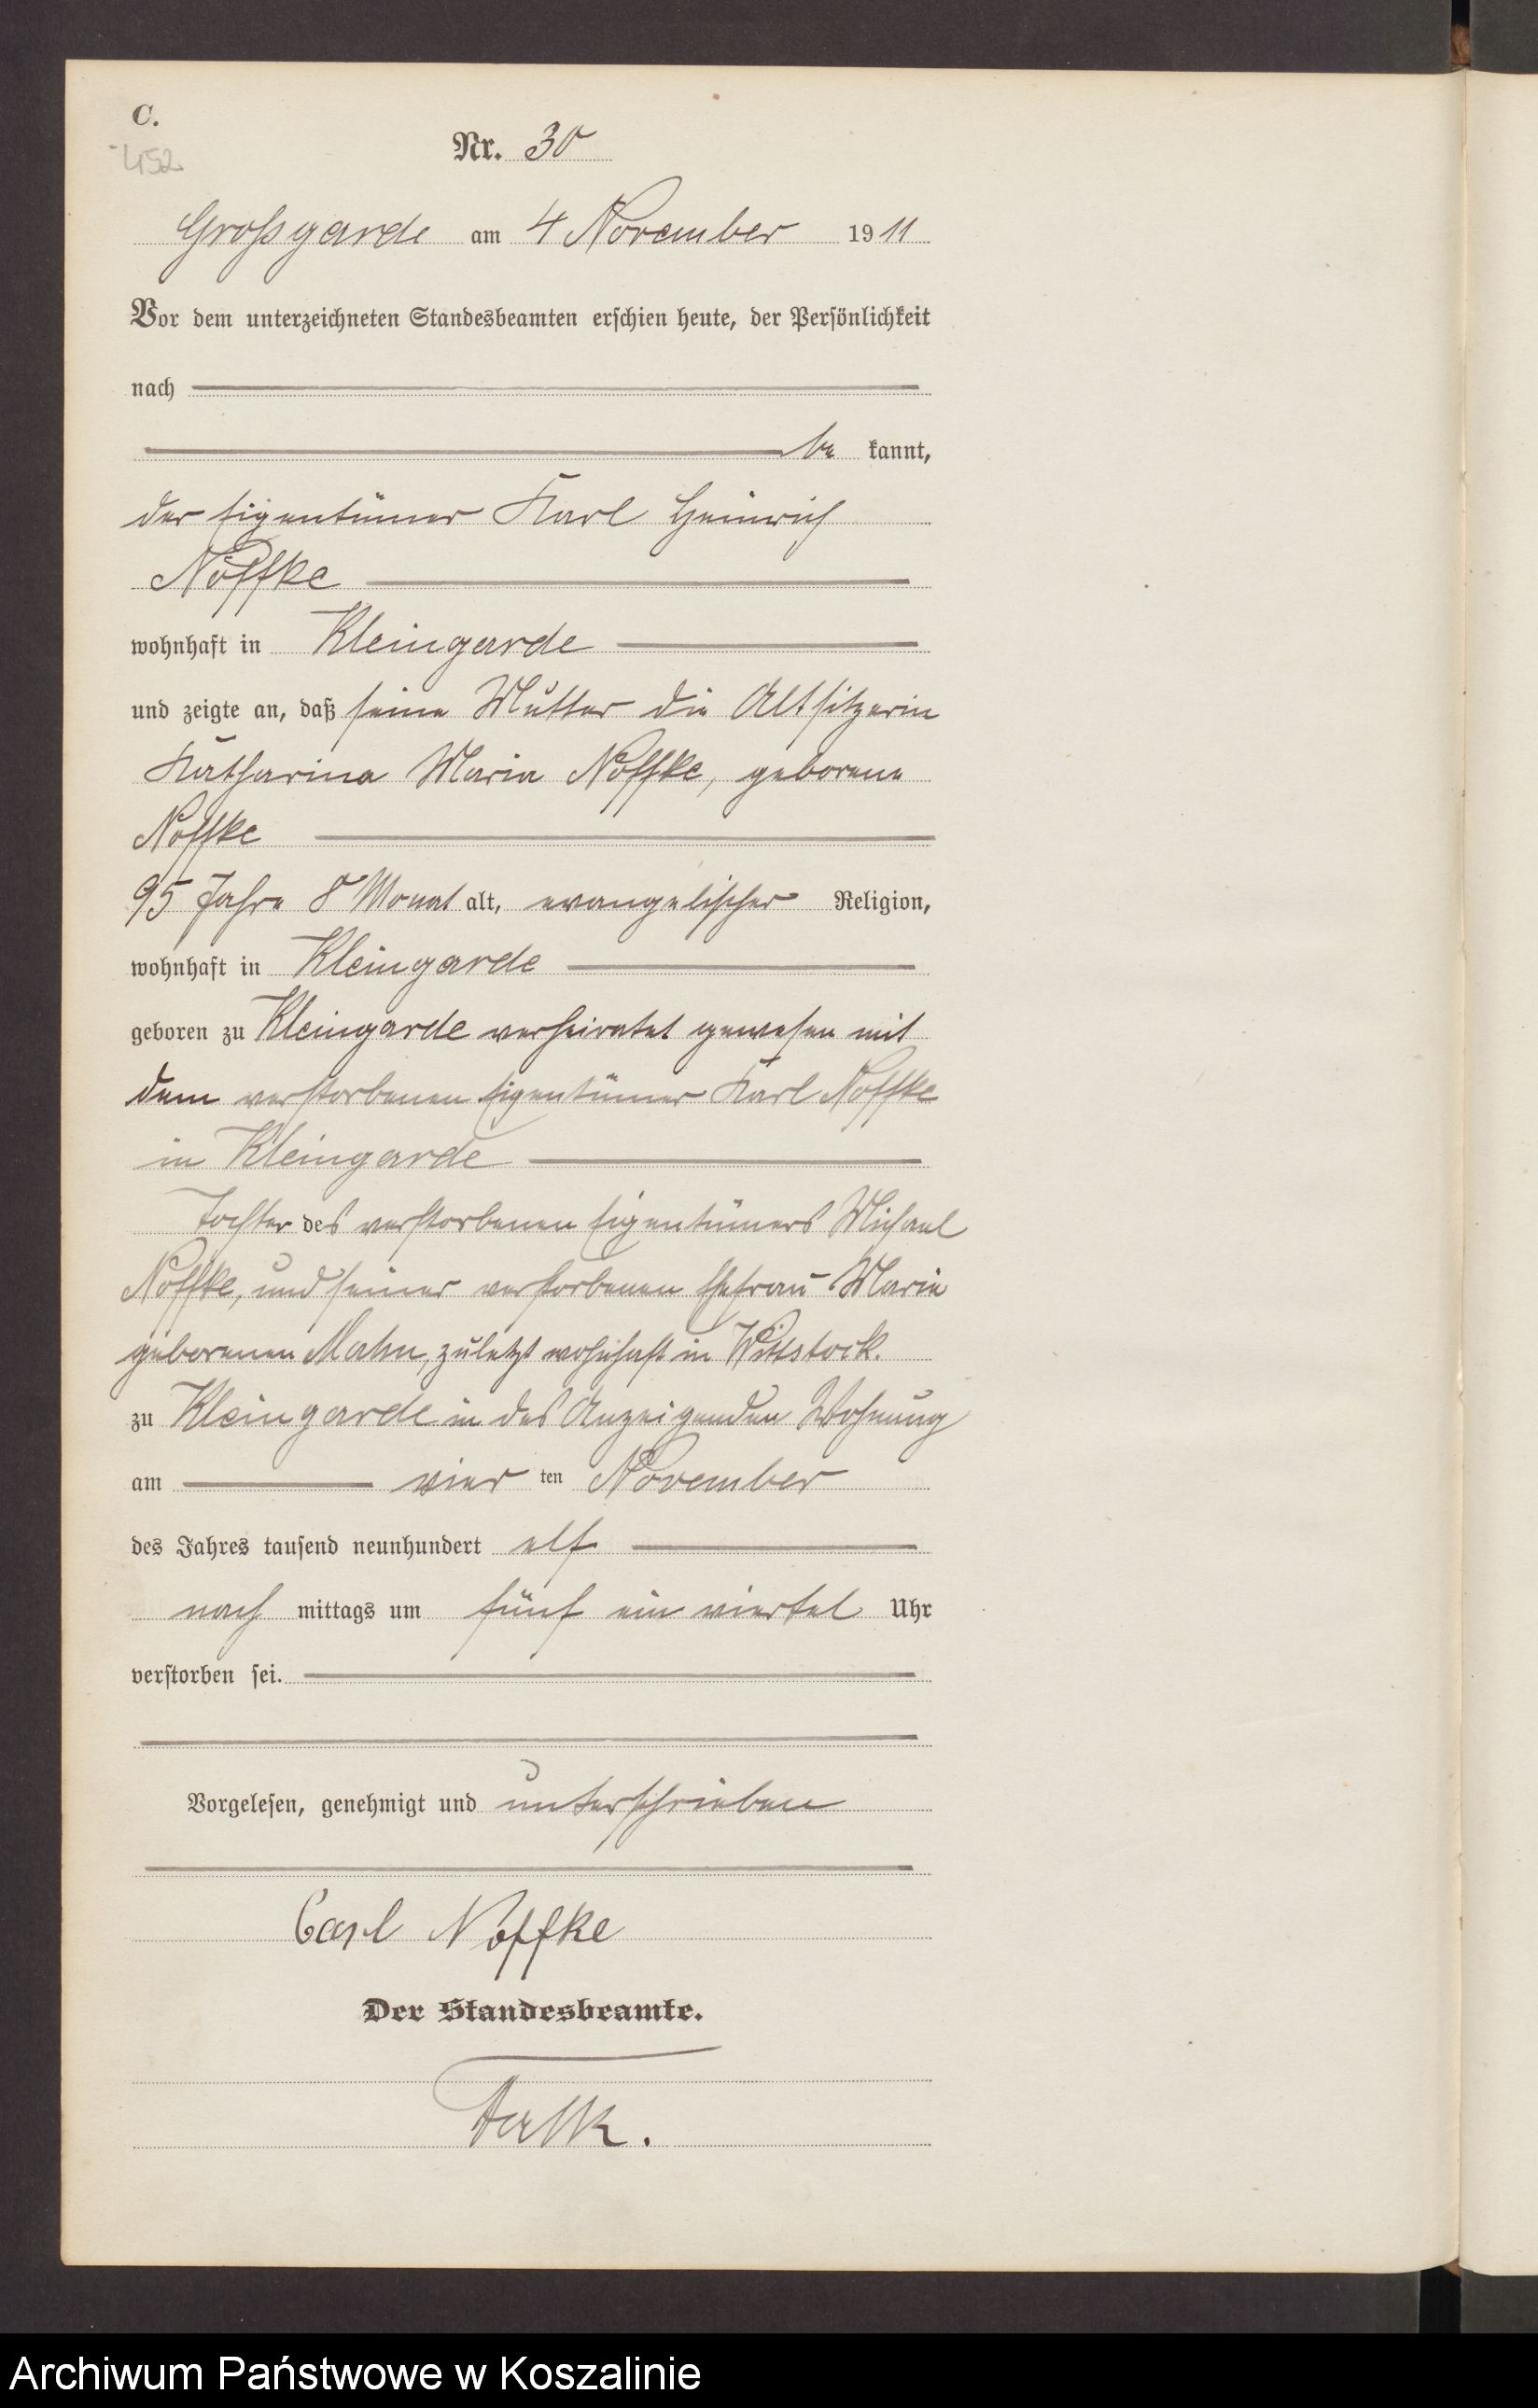 C.
452
Nr. 30
Großgarde am 4 November 1911
Vor dem unterzeichneten Standesbeamten erschien heute, der Persönlichkeit
nach
be kannt,
der Eigentümer Karl Heinrich
Noffke
wohnhaft in Kleingarde
und zeigte an, daß seine Mutter die Altsitzerin
Katharina Maria Noffke, geborene
Noffke
95 Jahre 8 Monat alt, evangelischer Religion,
wohnhaft in Kleingarde
geboren zu Kleingarde verheiratet gewesen mit
dem verstorbenen Eigentümer Karl Noffke
in Kleingarde
Tochter des verstorbenen Eigentümers Michael
Noffke, und seiner verstorbenen Ehefrau Marie
geborenen Mahn, zuletzt wohnhaft in Wittstock.
zu Kleingarde in des Anzeigenden Wohnung
am vier ten November
des Jahres tausend neunhundert elf
nach mittags um fünf ein viertel Uhr
verstorben sei.
Vorgelesen, genehmigt und unterschrieben
Carl Noffke
Der Standesbeamte.
Falk.
Archiwum Państwowe w Koszalinie